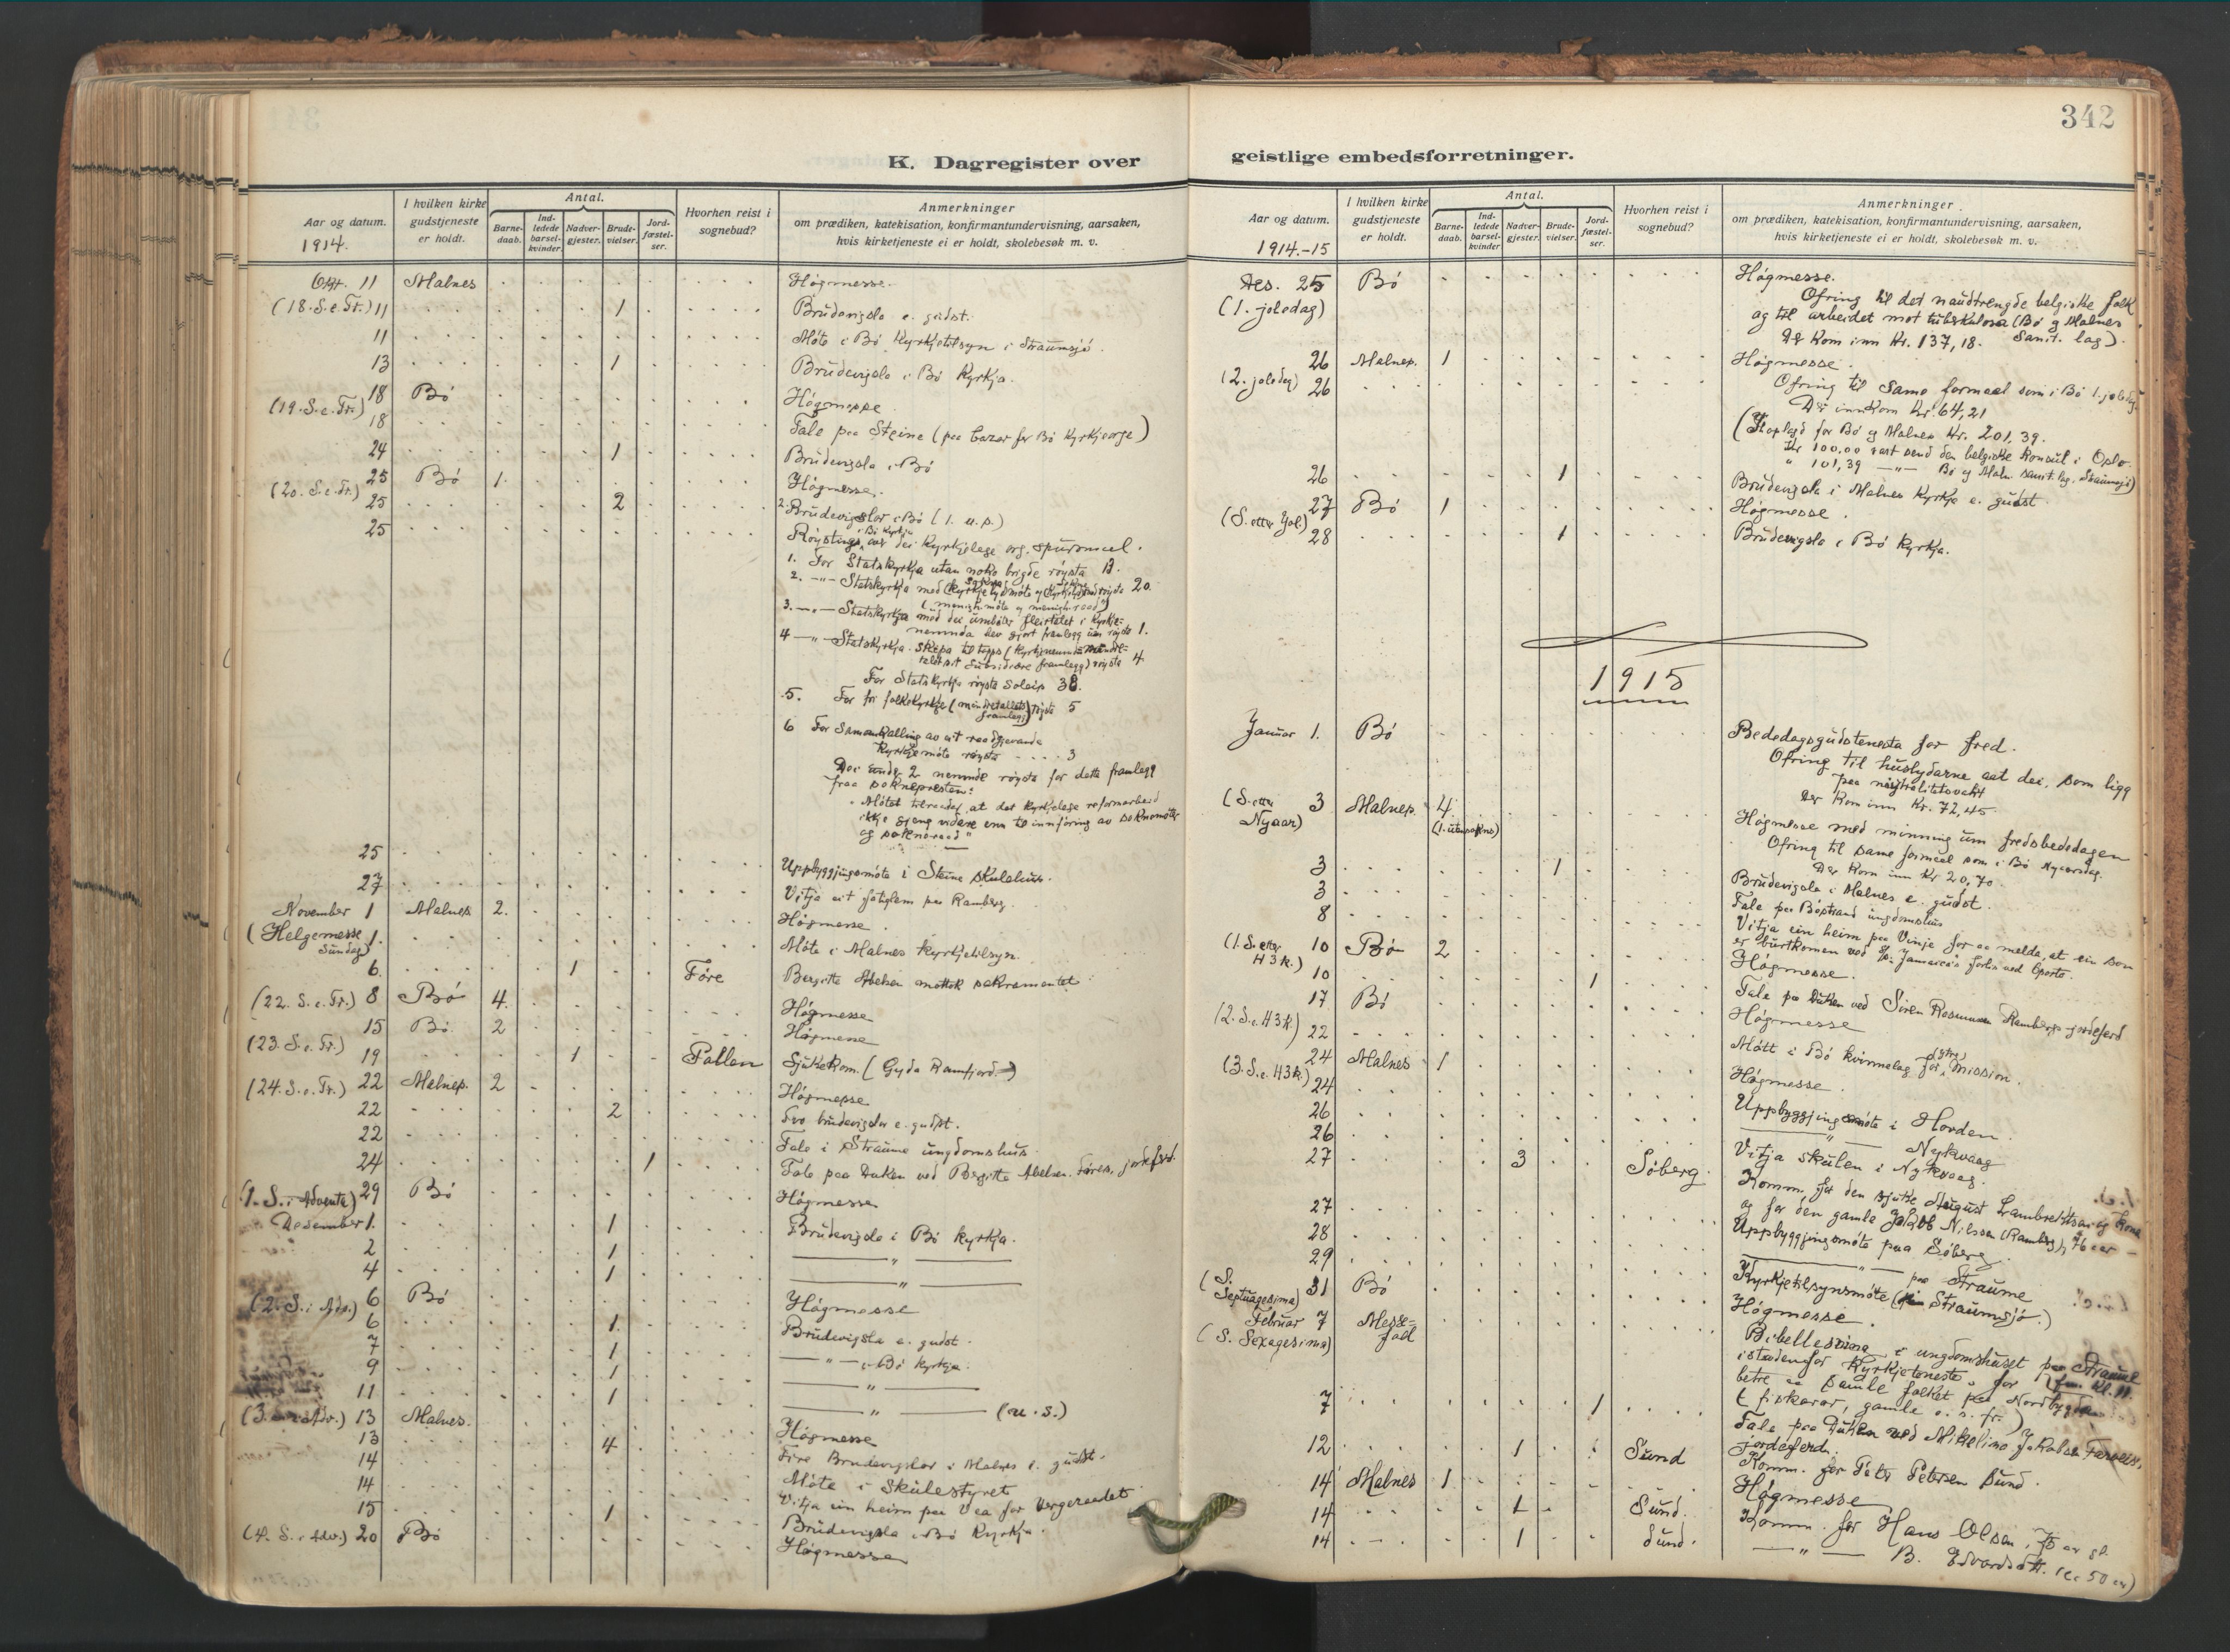 342
K. Dagregister over
Aar og datum.
1914.
I hvilken kirke gudstjeneste er holdt.
Antal.
Barne-daab.
Ind-ledede barsel-kvinder.
Nadver-gjester.
Brude-vielser.
Jord-fæstel-ser.
Hvorhen reist i sognebud?
Anmerkninger
om prædiken, katekisation, konfirmantundervisning, aarsaken,
hvis kirketjeneste ei er holdt, skolebesøk m. v.
Okt. 11 Malnes Högmesse.
(18. S. e. Tr.) 11 1 Brudevigsla e. gudst.
11 Møte i Bø Kyrkjetilsyn i Straumsjø.
13 1 Brudevigsla i Bø Kyrkja.
18 Bø Högmesse
(19. S. e. Tr.) 18 Tale paa Steine (paa bazar for Bø Kyrkjeorge)
24 1 Brudevigsla i Bø
25 Bø 1. Högmesse.
(20. S. e. Tr.) 25 2 2 Brudevigslor i Bø (1. u. s.)
25 Røysting i Bø Kyrkja um dei kyrkjelege org. spursmaal.
1. For Statskyrkja utan noko brigde røysta 13.
2. -"- Statskyrkja med
20.
3. -"- Statskyrkja med dei umbøter fleirtalet i Kyrkje-
nemnda hev gjort framlegg um røysta 1.
4 -"- Statskyrkja
røysta 4
For Statskyrkja røysta soleis 38.
5. For fri folkekyrkje (mindretallets framlegg) røysta 5
6 For Samankalling av eit raadgjevande
Kyrkjemøte røysta .... 3
Dei under 2 nemnde røysta for dette framlegg
fraa soknepresten:
"Møtet tilraader, at det kyrkjelege reformarbeid
ikkje gjeng vidare enn til innføring av soknemøte
og sokneraad"
25 Uppbyggjingsmøte i Steine skulehus.
27 Vitja eit fatiglem paa Ramberg.
November 1 Malnes 2. Högmesse.
(Helgemesse Sundag) 1. Møte i Malnes Kyrkjetilsyn.
6. 1 Føre Bergitte Abelsen mottok sakramentet
(22. S. e. Tr.) 8 Bø 4. Högmesse
15 Bø. 2 Högmesse
(23. S. e. Tr.) 19 1 Pallen Sjukekom. (Gyda Ramfjord)
(24. S. e. Tr.) 22 Malnes. 2 Högmesse
22 2 Tvo brudevigslor e. gudst.
22 Tale i Straume ungdomshus
24 1 Tale paa Duken ved Bergitte Abelsen. Føres, jordeferd.
(1. S. i Adventa) 29 Bø Högmesse
Desember 1. 1 Brudevigsla i Bø kyrkja.
2 1 "
4 1 "
(2. S. i Adv.) 6 Bø Högmesse
6 1. Brudevigsla e. gudst.
7 1 -"- i Bø kyrkja.
9 1 "
11 1 " (u. s.)
(3. S. i Adv.) 13 Malnes. Högmesse
13 4 Fire Brudevigslor i Malnes e. gudst.
14 Møte i Skulestyret
14 Vitja ein heim paa Vea for Vergeraadet
15 1 Brudevigsla i Bø Kyrkja.
(4. S. i Adv.) 20 Bø Högmesse
geistlige embedsforretninger.
Aar og datum.
1914.-15
I hvilken kirke gudstjeneste er holdt.
Antal.
Barne-daab.
Ind-ledede barsel-kvinder
Nadver-gjester.
Brude-vielser.
Jord-fæstel-ser.
Hvorhen reist i sognebud?
Anmerkninger.
om prædiken, katekisation, konfirmantundervisning, aarsaken,
hvis kirketjeneste ei er holdt, skolebesøk m. v.
Des. 25 Bø Högmesse.
(1. joledag) Ofring til det naudtrengde belgiske folk
og til arbeidet mot tuberkulosa (Bø og Malnes
Sanit. lag).
Der kom inn Kr. 137,18.
26 Malnes. 1 Högmesse.
(2. joledag) 26 Ofring til same formaal som i Bø 1. joledag.
Der innkom Kr. 64,21
for Bø og Malnes Kr. 201,39.
Kr 100.00 vart send den belgiske konsul i Oslo.
" 101,39 -"- Bø og Maln. sanit. lag, Straumsjø)
26 1 Brudevigsla i Malnes Kyrkja e. gudst.
27 Bø 1 Högmesse.
(S. etter Jol.) 28 1 Brudevigsla i Bø Kyrkja.
1915
Januar 1. Bø Bededagsgudstenesta for fred.
Ofring til huslydarne aat dei, som ligg
paa nøytralitetsvakt
Der kom inn Kr. 72,45
(S. etter Nyaar) 3 Malnes. 4. (1. utansokns) Högmesse med minning um fredsbededagen
Ofring til same formaal som i Bø Nyaarsdag.
Der kom inn Kr 20,70.
3 1 Brudevigsla i Malnes e. gudst.
3 Tale paa Bøstrand ungdomshus
8 Vitja ein heim paa Vinje for aa melda, at ein son
er burtkomen ved S/S. Jamaica's forlis ved Oporto.
(1. S. etter H3k.) 10 Bø 2 Högmesse.
10 1 Tale paa Duken ved Søren Rasmussen Rambergs jordeferd
17 Bø Högmesse
(2. S. e. H3k.) 22 Møtt i Bø kvinnelag for (ytre) Mission.
24 Malnes 1 Högmesse.
(3. S. e. H3k.) 24 Uppbyggjingsmøte i Hovden.
26 " Nykvaag
26 Vitja skulen i Nykvaag.
27 3 Søberg. Komm. for den sjuke August Lambrektsen og kona
og for den gamle Jakob Nilssen (Ramberg), 76 aar
27 Uppbyggjingsmøte paa Søberg
28 " paa Straume
29 Kyrkjetilsynsmøte (Straumsjø.)
(S. Septuagesima) 31 Bø Högmesse.
Februar 7 Messe-fall Bibellesning i ungdomshuset paa Straume
(S. Sexagesima) istadenfor Kyrkjeteneste, for kl. 11.
betre aa samle folket paa Nordbygda
(fiskarar, gamle o. s. fr.)
7 1 Tale paa Duken ved Mikeline Jakobsen
jordeferd.
12 1 Sund Komm. for Peter Petersen Sund.
14 Malnes 1 Högmesse
14 1 Sund. Komm. for Hans Olsen, 75 aar gl.
14 1 Sund. -"- B. Edvardsdtt. (ca 50 aar)